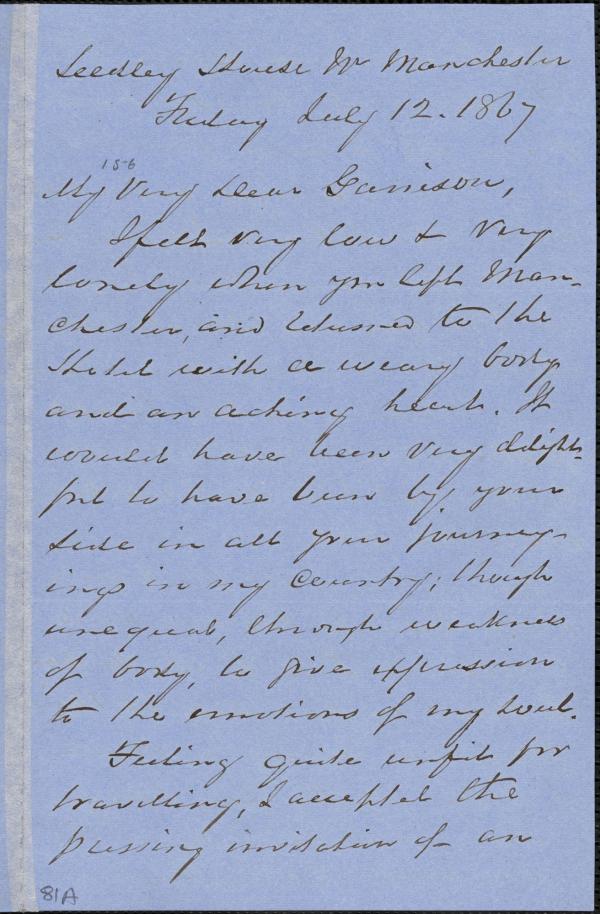 Seedley House Nr Manchester
Friday July 12. 1867
156
My Very Dear Garrison,
I felt very low & very
lonely when you left Man-
chester, and returned to the
Hotel with a weary body
and an aching heart. It
would have been very delight-
ful to have been by your
side in all your journey-
ings in my country; though
unequal, through weakness
of body, to give expression
to the emotions of my soul.
Feeling quite unfit for
travelling, I accepted the
pressing invitation of an
81A